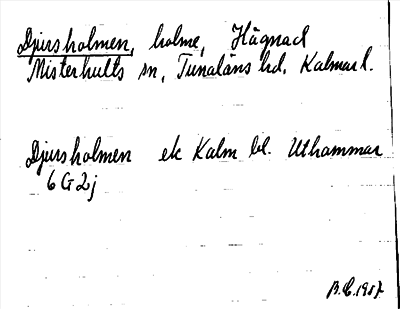 Djursholmen, holme, Hägnad
Misterhults sn, Tunaläns hd. Kalmar l.
Djursholmen ek Kalm bl. Uthammar
6 G 2 j